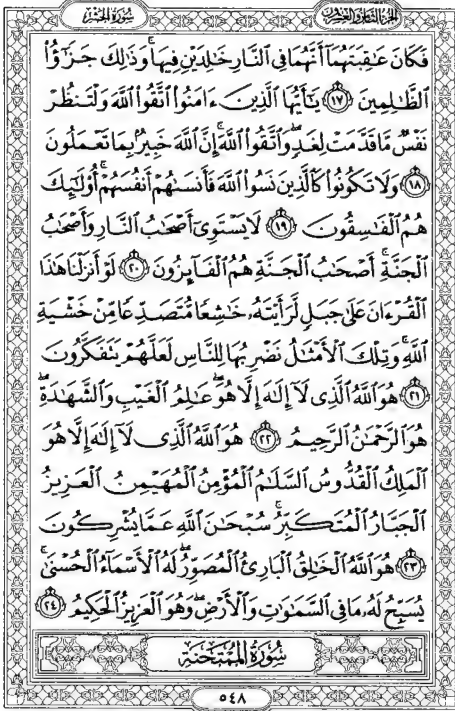 الجزء الثامن والعشرون
سورة الحشر
فَكَانَ عَٰقِبَتَهُمَآ أَنَّهُمَا فِي ٱلنَّارِ خَٰلِدَيۡنِ فِيهَاۚ وَذَٰلِكَ جَزَٰٓؤُاْ
ٱلظَّٰلِمِينَ ١٧ يَٰٓأَيُّهَا ٱلَّذِينَ ءَامَنُواْ ٱتَّقُواْ ٱللَّهَ وَلۡتَنظُرۡ
نَفۡسٞ مَّا قَدَّمَتۡ لِغَدٖۖ وَٱتَّقُواْ ٱللَّهَۚ إِنَّ ٱللَّهَ خَبِيرُۢ بِمَا تَعۡمَلُونَ
١٨ وَلَا تَكُونُواْ كَٱلَّذِينَ نَسُواْ ٱللَّهَ فَأَنسَىٰهُمۡ أَنفُسَهُمۡۚ أُوْلَٰٓئِكَ
هُمُ ٱلۡفَٰسِقُونَ ١٩ لَا يَسۡتَوِيٓ أَصۡحَٰبُ ٱلنَّارِ وَأَصۡحَٰبُ
ٱلۡجَنَّةِۚ أَصۡحَٰبُ ٱلۡجَنَّةِ هُمُ ٱلۡفَآئِزُونَ ٢٠ لَوۡ أَنزَلۡنَا هَٰذَا
ٱلۡقُرۡءَانَ عَلَىٰ جَبَلٖ لَّرَأَيۡتَهُۥ خَٰشِعٗا مُّتَصَدِّعٗا مِّنۡ خَشۡيَةِ
ٱللَّهِۚ وَتِلۡكَ ٱلۡأَمۡثَٰلُ نَضۡرِبُهَا لِلنَّاسِ لَعَلَّهُمۡ يَتَفَكَّرُونَ
٢١ هُوَ ٱللَّهُ ٱلَّذِي لَآ إِلَٰهَ إِلَّا هُوَۖ عَٰلِمُ ٱلۡغَيۡبِ وَٱلشَّهَٰدَةِۖ
هُوَ ٱلرَّحۡمَٰنُ ٱلرَّحِيمُ ٢٢ هُوَ ٱللَّهُ ٱلَّذِي لَآ إِلَٰهَ إِلَّا هُوَ
ٱلۡمَلِكُ ٱلۡقُدُّوسُ ٱلسَّلَٰمُ ٱلۡمُؤۡمِنُ ٱلۡمُهَيۡمِنُ ٱلۡعَزِيزُ
ٱلۡجَبَّارُ ٱلۡمُتَكَبِّرُۚ سُبۡحَٰنَ ٱللَّهِ عَمَّا يُشۡرِكُونَ
٢٣ هُوَ ٱللَّهُ ٱلۡخَٰلِقُ ٱلۡبَارِئُ ٱلۡمُصَوِّرُۖ لَهُ ٱلۡأَسۡمَآءُ ٱلۡحُسۡنَىٰۚ
يُسَبِّحُ لَهُۥ مَا فِي ٱلسَّمَٰوَٰتِ وَٱلۡأَرۡضِۖ وَهُوَ ٱلۡعَزِيزُ ٱلۡحَكِيمُ ٢٤
سُورَةُ المُمتَحنَةِ
٥٤٨